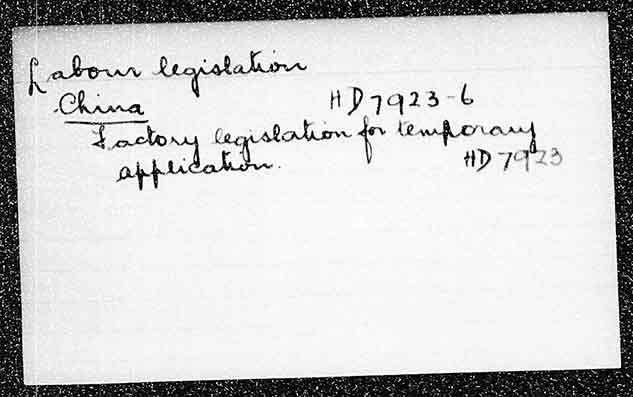 Labour legislation
China HD7923-6
Factory legislation for temporary
application. HD7923